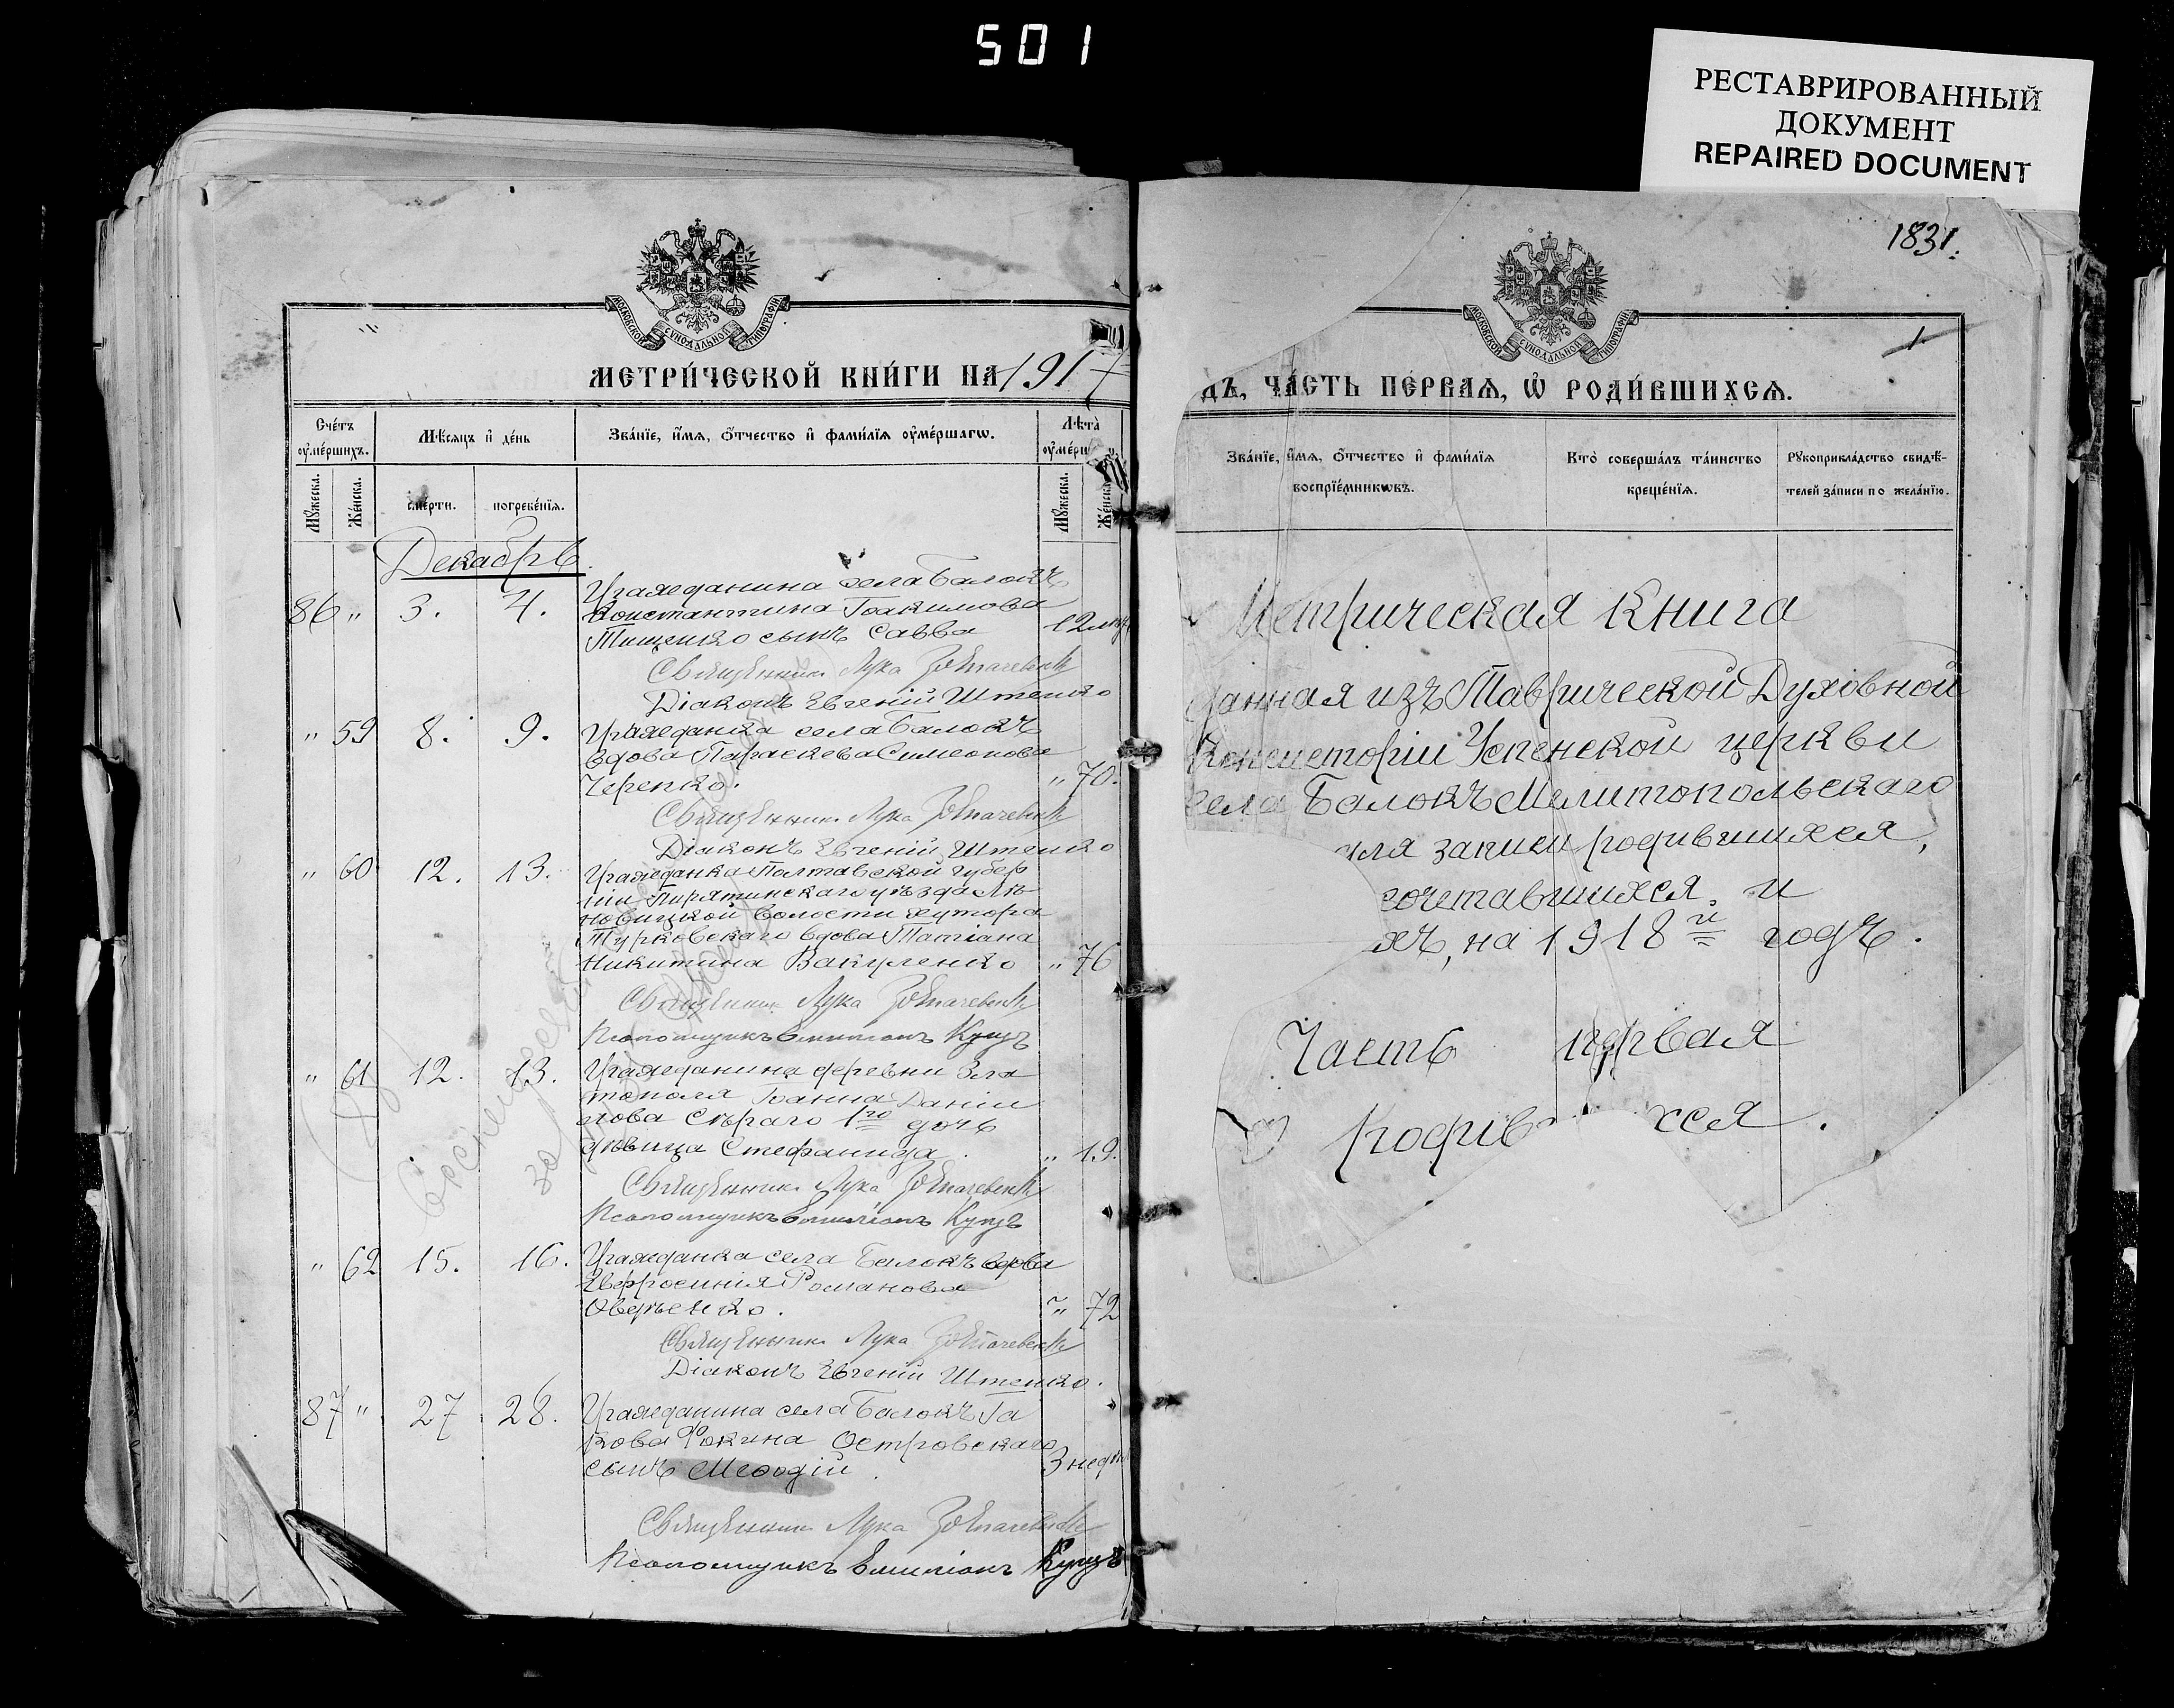 501
РЕСТАВРИРОВАННЫЙ
ДОКУМЕНТ
REPAIRED DOCUMENT
МОСКОВСКОЙ СУНОДАЛЬНОЙ ТИПОГРАФІИ
МЕТРИ́ЧЕСКОЙ КНИ́ГИ НА 1917
Сче́тъ ᲂу҆ме́ршихъ.
Мѣ́сяцъ и҆ де́нь
Зва́нїе, и҆́мя, ѻ҆́тчество и҆ фами́лїя ᲂу҆ме́ршагѡ.
Лѣ́та ᲂу҆ме́рш
Мꙋ́жеска.
Же́нска.
сме́рти.
погребе́нїя.
Мꙋ́жеска.
Же́нска
Декабрь.
86 " 3. 4. Гражданина села Балокъ
Константина Іоакимова
Тищенко сынъ Савва 12
Священникъ Лука
Діаконъ Евгеній Штепко
" 59 8. 9. Гражданка села Балокъ
вдова Параскева Симеонова
Черепко. " 70.
Священникъ Лука
Діаконъ Евгеній Штепко
" 60 12. 13. Гражданка Полтавской губер
ніи Пирятинскаго уѣзда
новицкой волости хутора
Турковскаго вдова Татіана
Никитина Вакуленко " 76
Священникъ Лука
Псаломщикъ Емиліанъ Кущъ
" 61 12. 13. Гражданина деревни Зла
тополя Іоанна Даніи
лова Сѣраго 1го дочь
дѣвица Стефанида. " 19.
Священникъ Лука
Псаломщикъ Емиліанъ Кущъ
" 62 15. 16. Гражданка села Балокъ вдова
Евфросинія Романова
Оверченко. " 72
Священникъ Лука
Діаконъ Евгеній Штепко.
87 " 27. 28. Гражданина села Балокъ Іа
кова Фокина Островскаго
сынъ Меѳодій. 3 нед
Священникъ Лука
Псаломщикъ Емиліанъ Кущъ
1831.
МОСКОВСКОЙ СУНОДАЛЬНОЙ ТИПОГРАФІИ
1
ДЪ, ЧА́СТЬ ПЕ́РВАЯ, Ѽ РОДИ́ВШИХСЯ.
Зва́нїе, и҆́мя, ѻ҆́тчество и҆ фами́лїя
воспрїе́мникѡвъ.
Кто̀ соверша́лъ та́инство
креще́нїя.
Рꙋкоприкла́дство свидѣ́-
телей за́писи по жела́нїю.
Метрическая Книга
данная изъ Таврической Духовной
Консисторіи Успенской церкви
села Балокъ Мелитопольскаго
для записи родившихся,
сочетавшихся и
хъ, на 1918й годъ.
Часть первая
О родив хся.